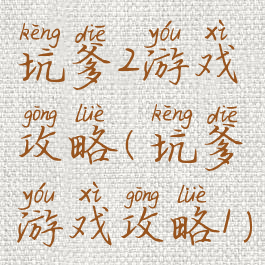 kēng diē yóu xì
坑爹2游戏
gōng lüè kēng diē
攻略(坑爹
yóu xì gōng lüè
游戏攻略1)